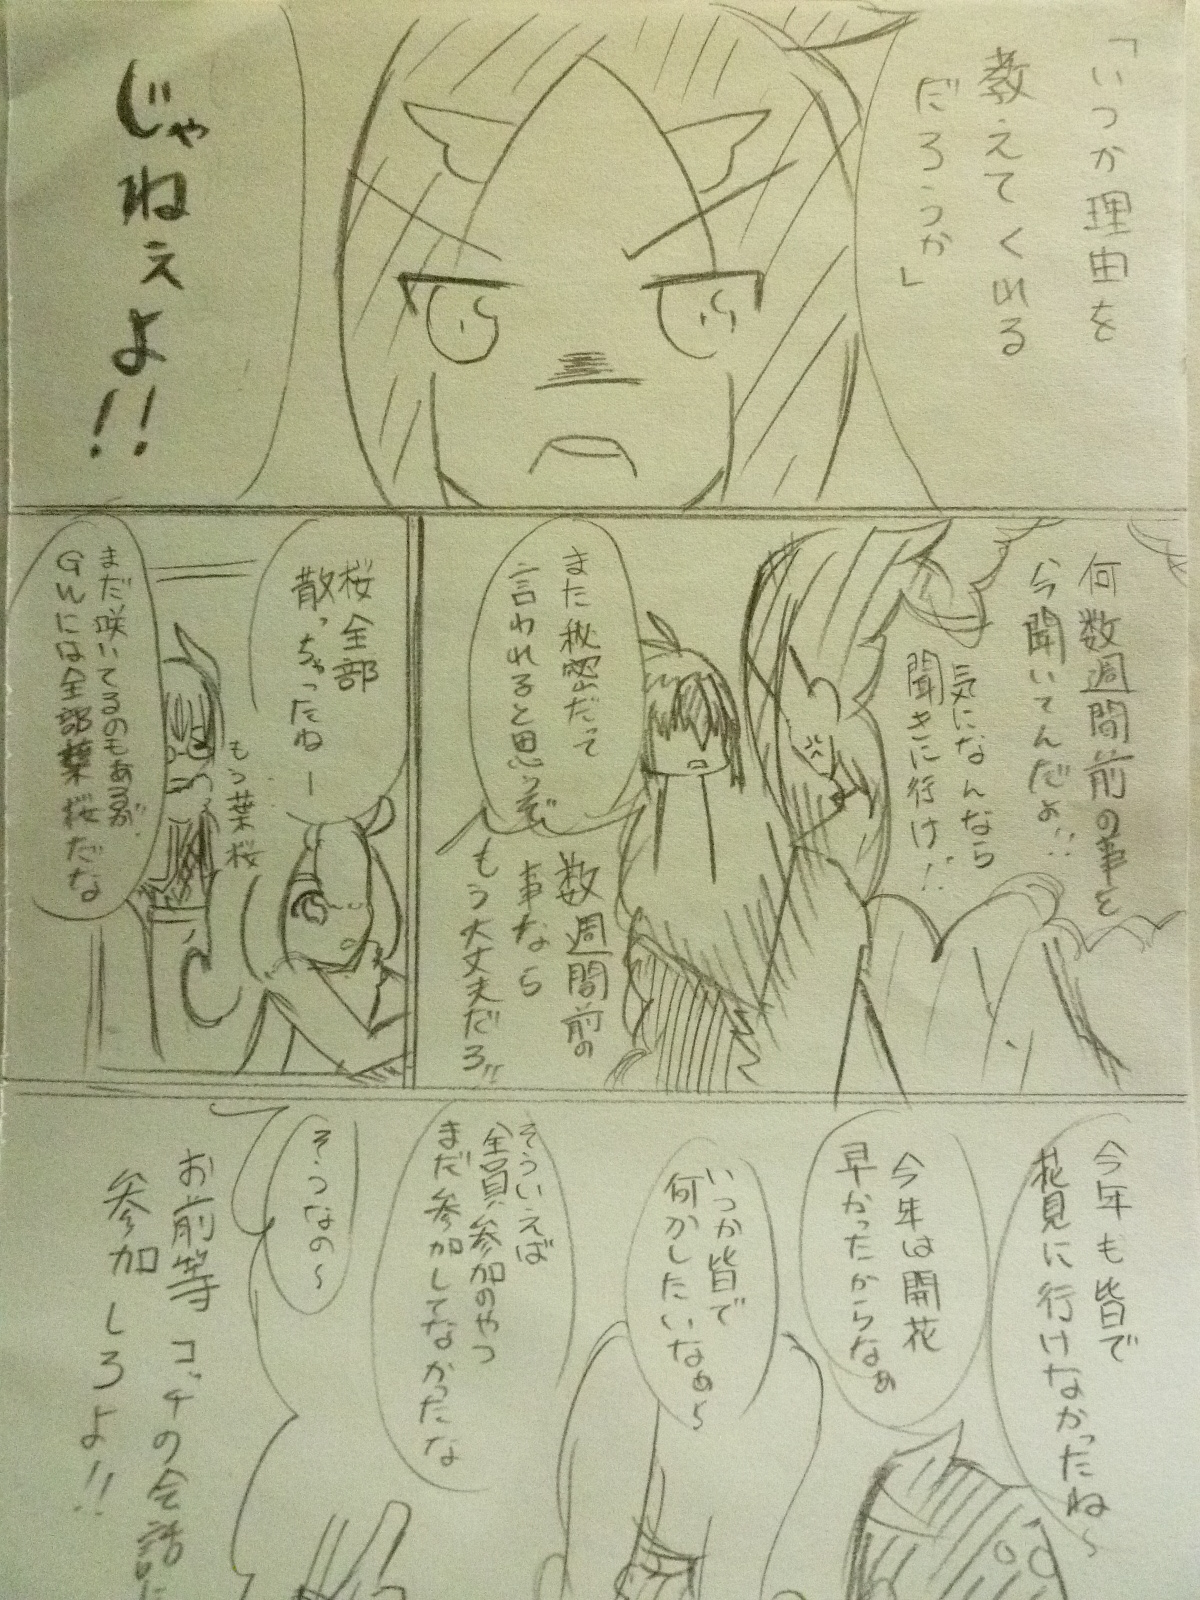 「いつか理由を
教えてくれる
だろうか」
じゃねぇよ!!
何数週間前の事を
今聞いてんだよ!!
気になんなら
聞きに行け!!
また秘密だって
言われると思うぞ
数週間前の
事なら
もう大丈夫だろ!!
桜全部
散っちゃったねー
もう葉桜
まだ咲いてるのもあるが、
GWには全部葉桜だな
今年も皆で
花見に行けなかったね〜
今年は開花
早かったからなぁ
いつか皆で
何かしたいなぁ〜
そういえば
全員参加のやつ
まだ参加してなかったな
そうなの〜
お前等コッチの会話に
参加しろよ!!